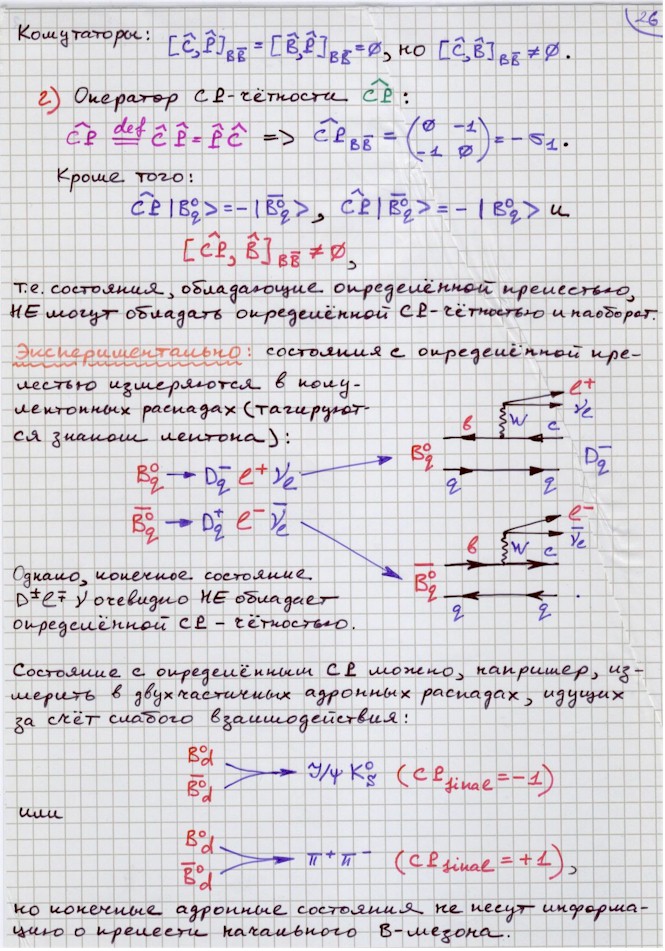 26
Комутаторы: [Ĉ, P̂]_BB̄ = [B̂, P̂]_BB̄ = 0, но [Ĉ, B̂]_BB̄ ≠ 0.
г) Оператор CP-чётности ĈP:
ĈP def= Ĉ P̂ = P̂ Ĉ => ĈP_BB̄ = (0 -1
-1 0) = -σ₁.
Кроме того:
ĈP |B⁰_q> = -|B̄⁰_q>, ĈP |B̄⁰_q> = -|B⁰_q> и
[ĈP, B̂]_BB̄ ≠ 0,
т.е. состояния, обладающие определённой прелестью,
НЕ могут обладать определённой CP-чётностью и наоборот.
Экспериментально: состояния с определённой пре-
лестью измеряются в полу-
лептонных распадах (тагируют-
ся знаком лептона):
B⁰_q → D⁻_q e⁺ ν_e
B̄⁰_q → D⁺_q e⁻ ν̄_e
e⁺
ν_e
в W c
B⁰_q D⁻_q
q q
e⁻
ν̄_e
в W c
B̄⁰_q
q q .
Однако, конечное состояние
D^± e^∓ ν очевидно НЕ обладает
определённой CP-чётностью.
Состояние с определённым CP можно, например, из-
мерить в двухчастичных адронных распадах, идущих
за счёт слабого взаимодействия:
B⁰_d
B̄⁰_d → J/ψ K⁰_S (CP_final = -1)
или
B⁰_d
B̄⁰_d → π⁺ π⁻ (CP_final = +1),
но конечные адронные состояния не несут информа-
цию о прелести начального B-мезона.